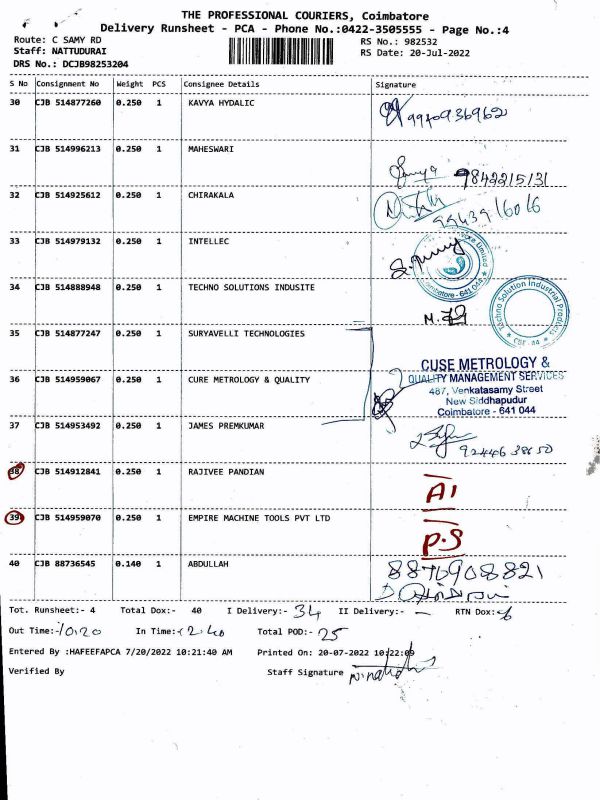 THE PROFESSIONAL COURIERS, Coimbatore
Delivery Runsheet - PCA - Phone No.:0422-3505555 - Page No.:4
Route: C SAMY RD RS No.: 982532
Staff: NATTUDURAI RS Date: 20-Jul-2022
DRS No.: DCJB98253204
S No Consignment No Weight PCS Consignee Details Signature
30 CJB 514877260 0.250 1 KAVYA HYDALIC
9940936962
31 CJB 514996213 0.250 1 MAHESWARI
9842215131
32 CJB 514925612 0.250 1 CHIRAKALA
9943916016
33 CJB 514979132 0.250 1 INTELLEC
Limited
Coimbatore - 641 044
34 CJB 514888948 0.250 1 TECHNO SOLUTIONS INDUSITE
Techno Solution Industrial Products
CBE-44
35 CJB 514877247 0.250 1 SURYAVELLI TECHNOLOGIES
36 CJB 514959067 0.250 1 CURE METROLOGY & QUALITY
CUSE METROLOGY &
QUALITY MANAGEMENT SERVICES
487, Venkatasamy Street
New Siddhapudur
Coimbatore - 641 044
37 CJB 514953492 0.250 1 JAMES PREMKUMAR
9244638650
38 CJB 514912841 0.250 1 RAJIVEE PANDIAN
A1
39 CJB 514959070 0.250 1 EMPIRE MACHINE TOOLS PVT LTD
P.S
40 CJB 88736545 0.140 1 ABDULLAH
8876908821
Tot. Runsheet:- 4 Total Dox:- 40 I Delivery:- 34 II Delivery:- – RTN Dox:- 6
Out Time:- 10.20 In Time:- 2.40 Total POD:- 25
Entered By :HAFEEFAPCA 7/20/2022 10:21:40 AM Printed On: 20-07-2022 10:22:09
Verified By Staff Signature